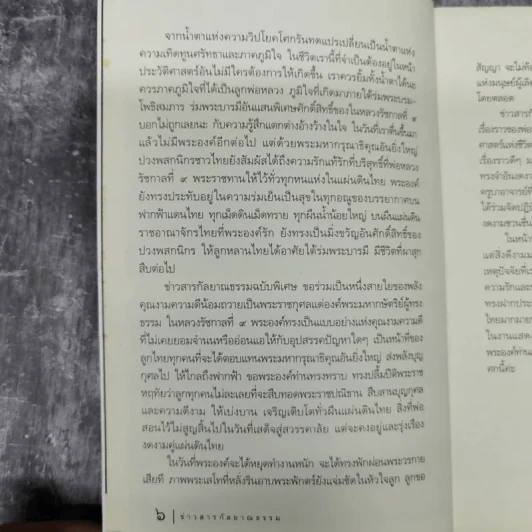 จากน้ำตาแห่งความวิปโยคโศกรันทดแปรเปลี่ยนเป็นน้ำตาแห่ง
ความเทิดทูนศรัทธาและภาคภูมิใจ ในชีวิตเรานี้ที่จำเป็นต้องอยู่ในหน้า
ประวัติศาสตร์อันไม่มีใครต้องการให้เกิดขึ้น เราควรยิ้มทั้งน้ำตาได้นะ
ควรภาคภูมิใจที่ได้เป็นลูกพ่อหลวง ภูมิใจที่เกิดมาภายใต้ร่มพระบรม-
โพธิสมภาร ร่มพระบารมีอันแสนพิเศษศักดิ์สิทธิ์ของในหลวงรัชกาลที่ ๙
บอกไม่ถูกเลยนะ กับความรู้สึกแตกต่างอ้างว้างในใจ ในวันที่เราตื่นขึ้นมา
แล้วไม่มีพระองค์อีกต่อไป แต่ด้วยพระมหากรุณาธิคุณอันยิ่งใหญ่
ปวงพสกนิกรชาวไทยยังสัมผัสได้ถึงความรักแท้รักที่บริสุทธิ์ที่พ่อหลวง
รัชกาลที่ ๙ พระราชทานให้ไว้ทั่วทุกหนแห่งในแผ่นดินไทย พระองค์
ยังทรงประทับอยู่ในความร่มเย็นเป็นสุขในทุกอณูของบรรยากาศบน
ฟากฟ้าแดนไทย ทุกเม็ดดินเม็ดทราย ทุกผืนน้ำน้อยใหญ่ บนผืนแผ่นดิน
ราชอาณาจักรไทยที่พระองค์รัก ยังทรงเป็นมิ่งขวัญอันศักดิ์สิทธิ์ของ
ปวงพสกนิกร ให้ลูกหลานไทยได้อาศัยใต้ร่มพระบารมี มีชีวิตที่ผาสุก
สืบต่อไป
ข่าวสารกัลยาณธรรมฉบับพิเศษ ขอร่วมเป็นหนึ่งสายใยของพลัง
คุณงามความดีน้อมถวายเป็นพระราชกุศลแด่องค์พระมหากษัตริย์ผู้ทรง
ธรรม ในหลวงรัชกาลที่ ๙ พระองค์ทรงเป็นแบบอย่างแห่งคุณงามความดี
ที่ไม่เคยยอมจำนนหรืออ่อนแอให้กับอุปสรรคปัญหาใดๆ เป็นหน้าที่ของ
ลูกไทยทุกคนที่จะได้ตอบแทนพระมหากรุณาธิคุณอันยิ่งใหญ่ ส่งพลังบุญ
กุศลไป ให้ไกลถึงฟากฟ้า ขอพระองค์ท่านทรงทราบ ทรงปลื้มปีติพระราช
หฤทัยว่าลูกทุกคนไม่ละเลยที่จะสืบทอดพระราชปณิธาน สืบสานบุญกุศล
และความดีงาม ให้เบ่งบาน เจริญเติบโตทั่วผืนแผ่นดินไทย สิ่งที่พ่อ
สอนไว้ไม่สูญสิ้นไปในวันที่เสด็จสู่สวรรคาลัย แต่จะคงอยู่และรุ่งเรือง
งดงามคู่แผ่นดินไทย
ในวันที่พระองค์จะได้หยุดทำงานหนัก จะได้ทรงพักผ่อนพระวรกาย
เสียที ภาพพระเสโทที่หลั่งรินอาบพระพักตร์ยังแจ่มชัดในหัวใจลูก ลูกขอ
๖ | ข่าวสารกัลยาณธรรม
สัญญา จะไม่ท้อ
แห่งมนุษย์ผู้เลิศ
โดยตลอด
ข่าวสารกั
เรื่องราวของพ่อ
ศาสตร์แห่งชีวิต
เรื่องราวดีๆ ม
ทรงจำอันงดงาม
ครูบาอาจารย์ที่
ได้ร่วมจัดปฏิบั
งดงามชวนชื่น
ในหน้า
แต่สิ่งดีงามม
เหตุปัจจัยที่เร
ความรักและ
ทรงฝากประ
ไทยมากมาย
ในงานแสดง
พระองค์ท่าน
ศกนี้ค่ะ